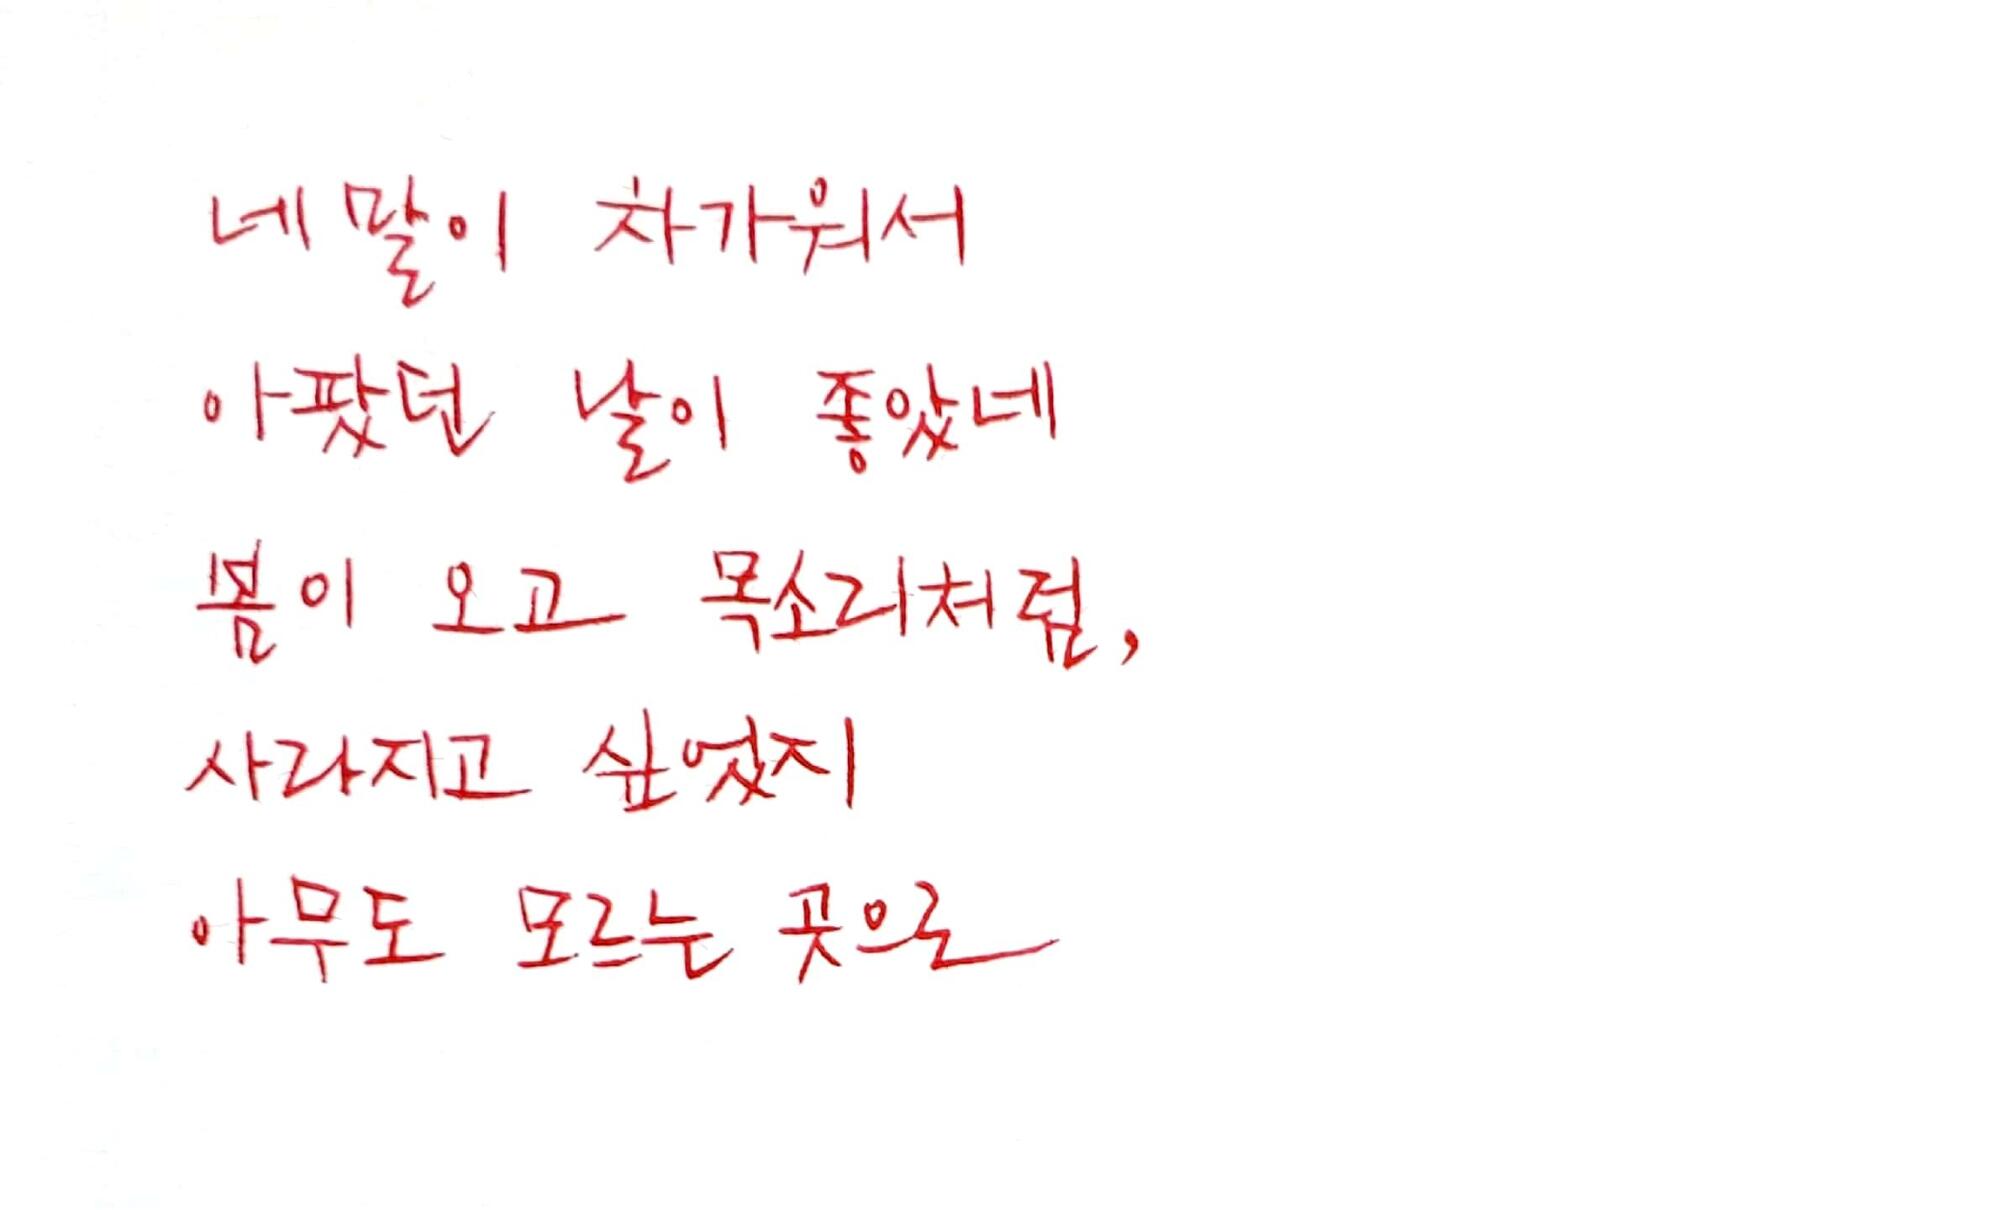 네 말이 차가워서
아팠던 날이 좋았네
봄이 오고 목소리처럼,
사라지고 싶었지
아무도 모르는 곳으로